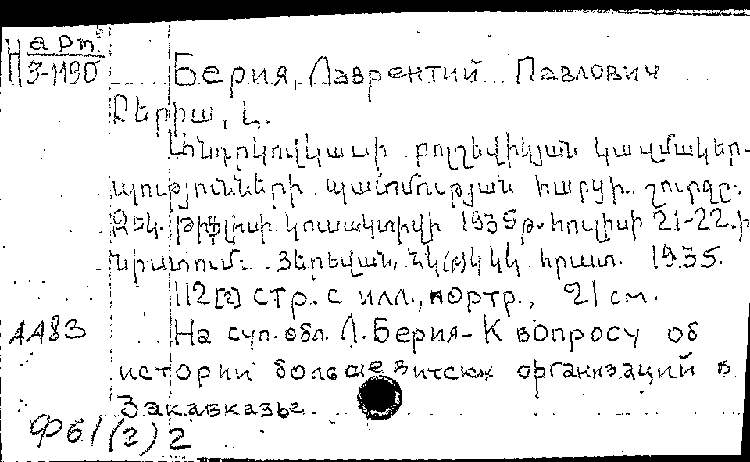 арт
П З-1190
Берия, Лаврентий Павлович
Բերիա, Լ.
Անդրկովկասի բոլշեվիկյան կազմակեր-
պությունների պատմության հարցի շուրջը:
Զեկ. Թիֆլիսի կուսակտիվի 1935թ. հուլիսի 21-22.ի
նիստում: Յերեվան, կկ հրատ. 1935.
112[2] стр. с илл., портр., 21 см.
АА83 На суп. обл. Л. Берия - К вопросу об
истории большевитских организаций в
Закавказье.
Ф61(2)2